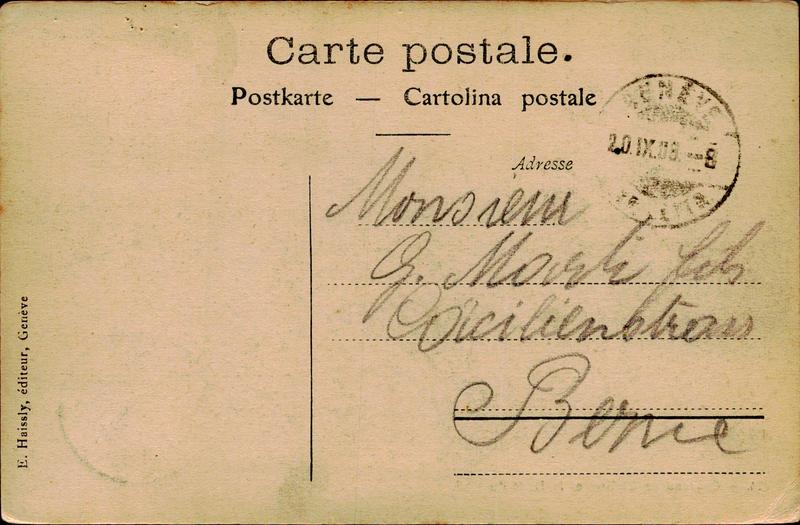 Carte postale.
Postkarte — Cartolina postale
GENÈVE
20.IX.08. 8
Adresse
Monsieur
G. Marti fils
Cäcilienstrasse
Berne
E. Haissly, éditeur, Genève